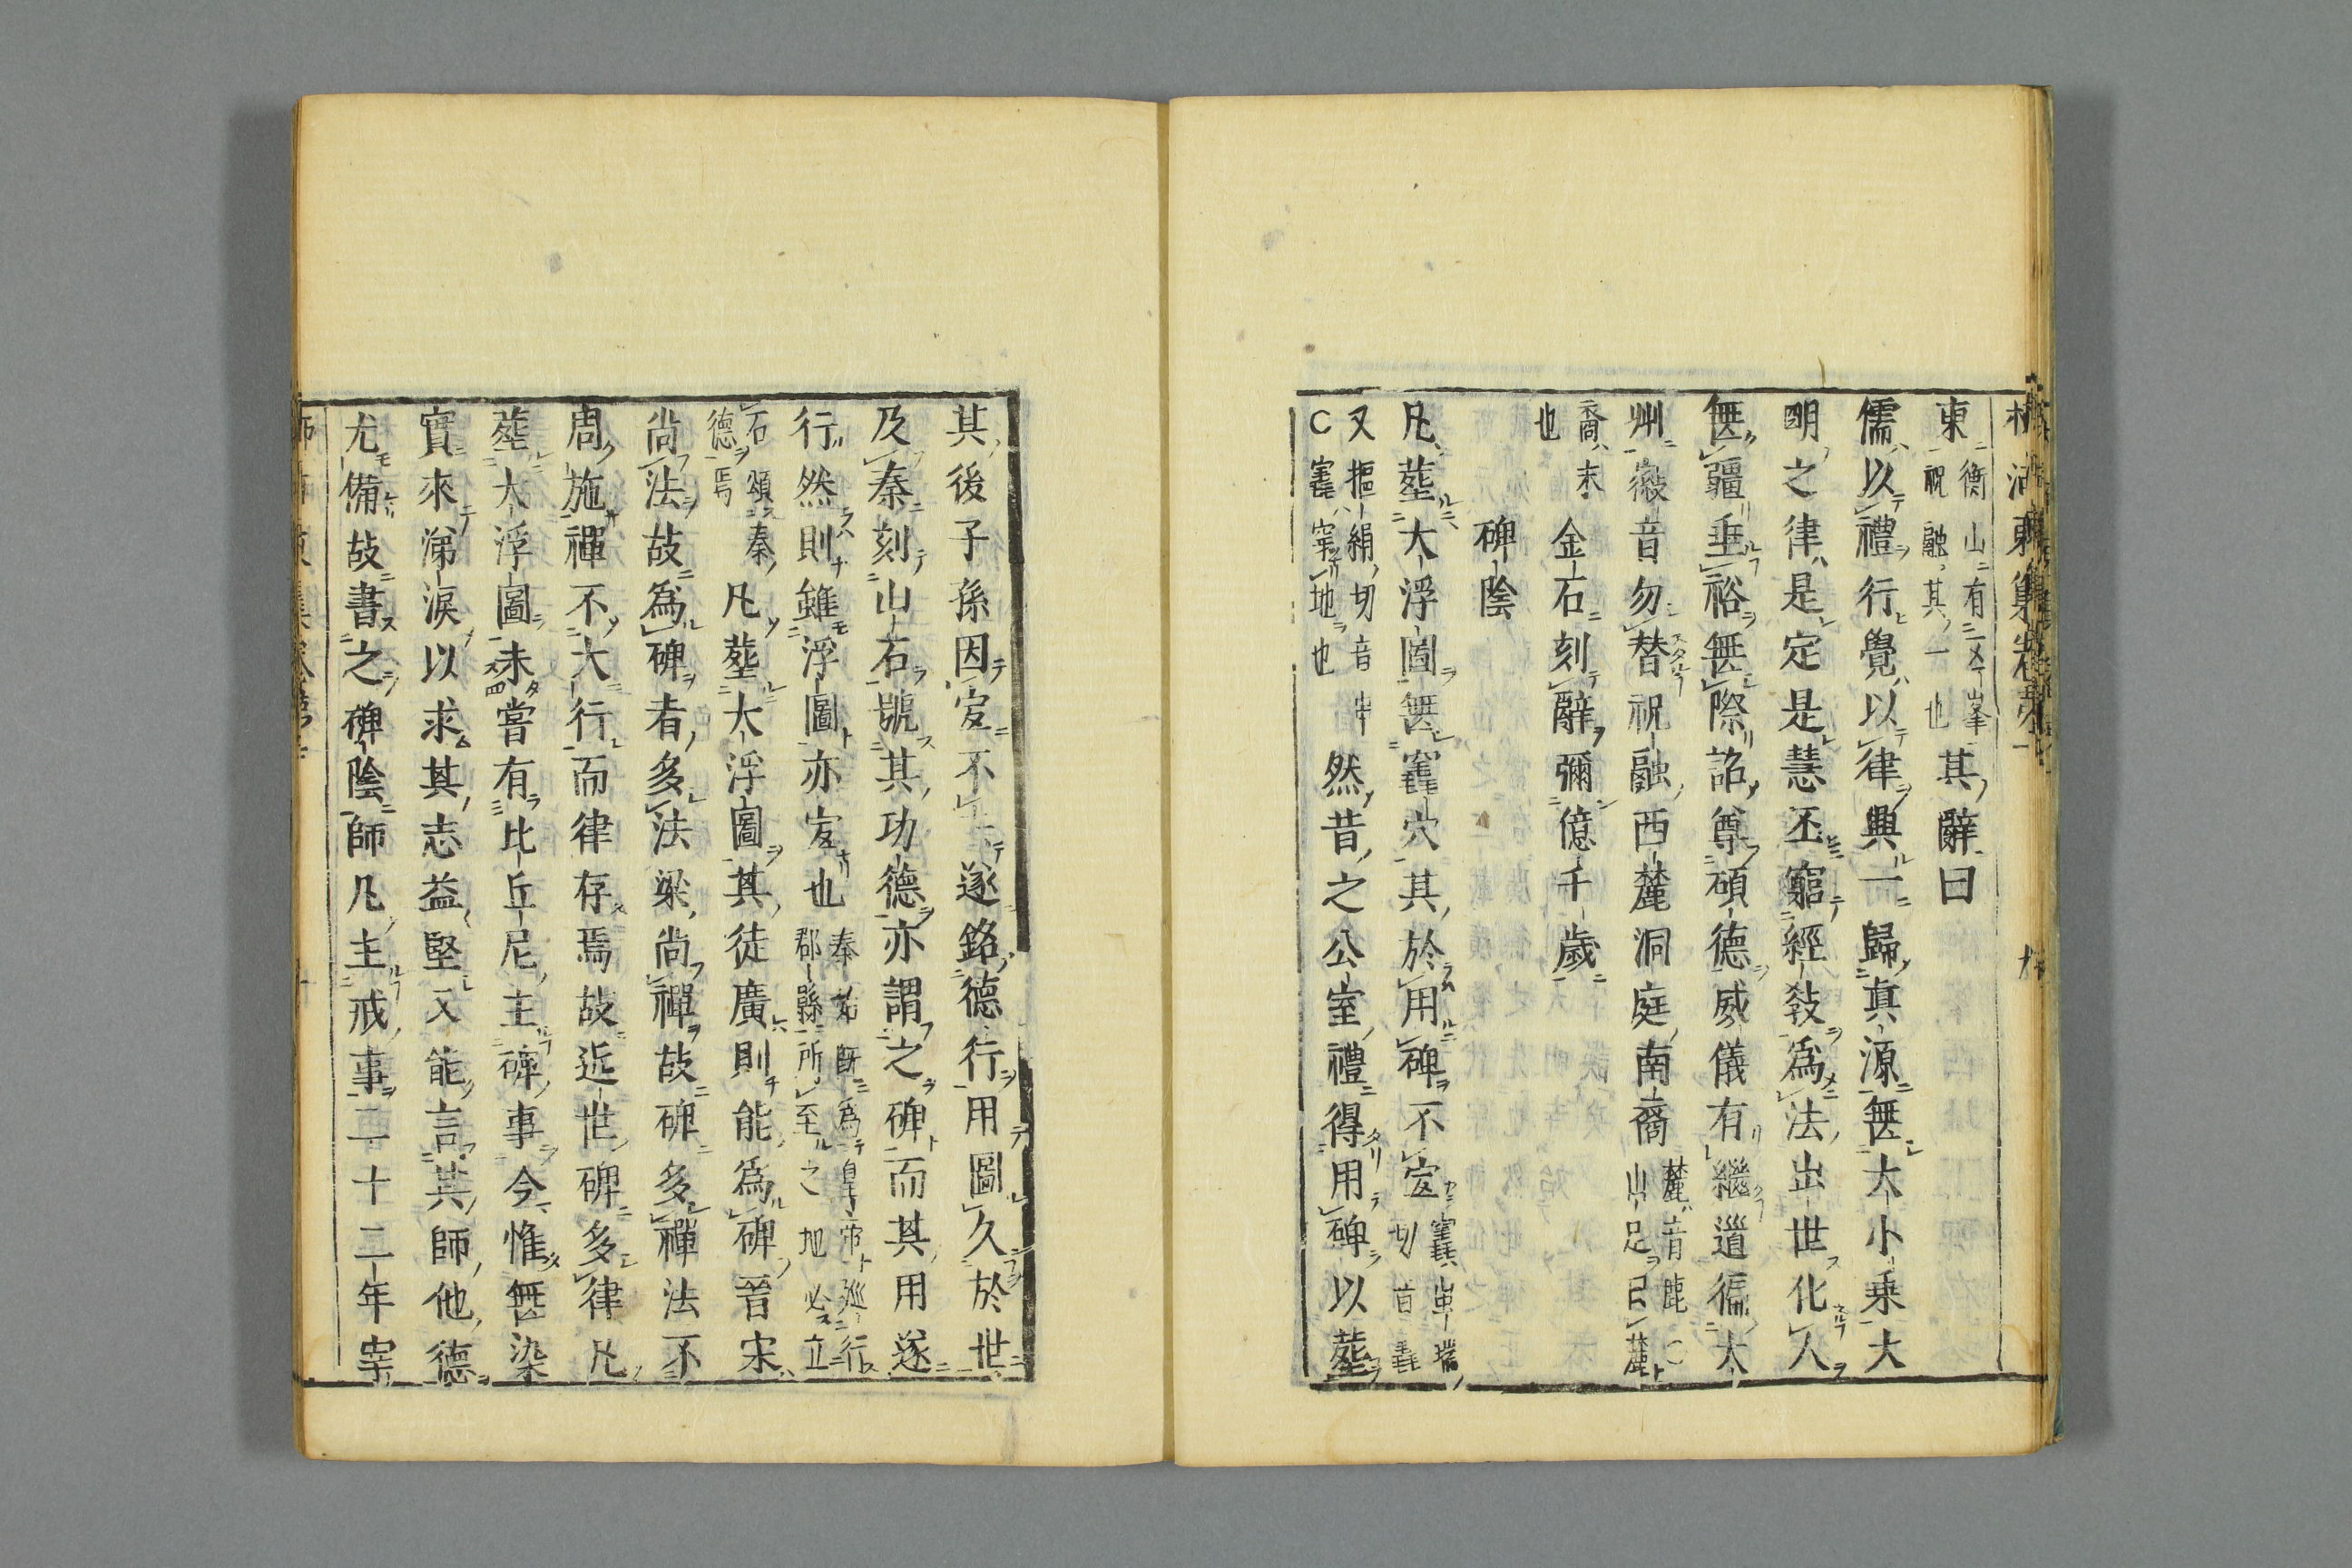 東 衡山有二文峯 祝融其一也 其辭曰
儒以禮行覺以律興一歸真源無大小乗大
明之律是定是慧丕窮經敎為法出世化人
無疆垂裕無際詔尊碩德威儀有繼道徧大
州徽音勿替祝融西麓洞庭南裔 麓音鹿○山足曰麓
裔末也 金石刻辭彌億千歲
碑陰
凡塟大浮圖無竁穴其於用碑不宐 竁 切
又摳絹切音 竁穿地也 然昔之公室禮得用碑以塟
其後子孫因宐不 遂銘德行用圖久於世
及秦刻山石號其功德亦謂之碑而其用遂
行然則雖浮圖亦宐也 秦始既為皇帝巡行郡縣所至之地必立
石頌德焉 秦凡塟大浮圖其徒廣則能為碑晉宋
尚法故為碑者多法梁尚禪故碑多禪法不
周施禪不大行而律存焉故近世碑多律凡
塟大浮圖未嘗有比丘尼主碑事今惟無染
實來涕淚以求其志益堅又能言其師他德
尤備故書之碑陰師凡主戒事二十二年宰